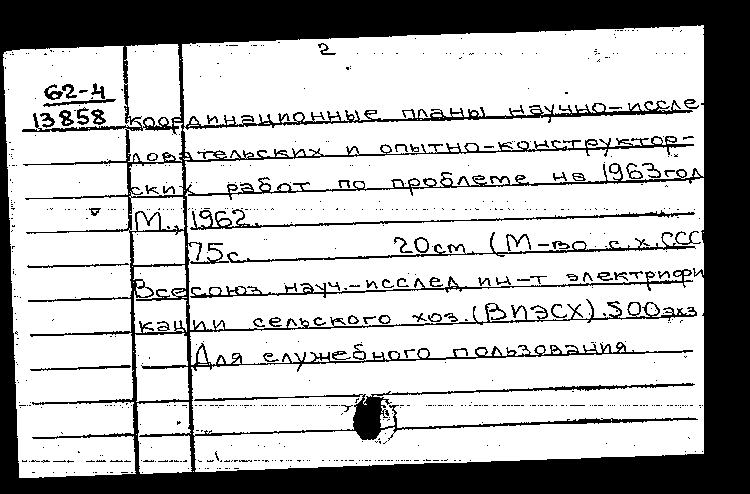 2
62-4
13858
координационные планы научно-иссле-
довательских и опытно-конструктор-
ских работ по проблеме на 1963 год
М., 1962.
75с. 20см. (М-во с.х. СССР
Всесоюз науч.-исслед ин-т электрифи
кации сельского хоз. (ВИЭСХ). 500 экз.
Для служебного пользования.